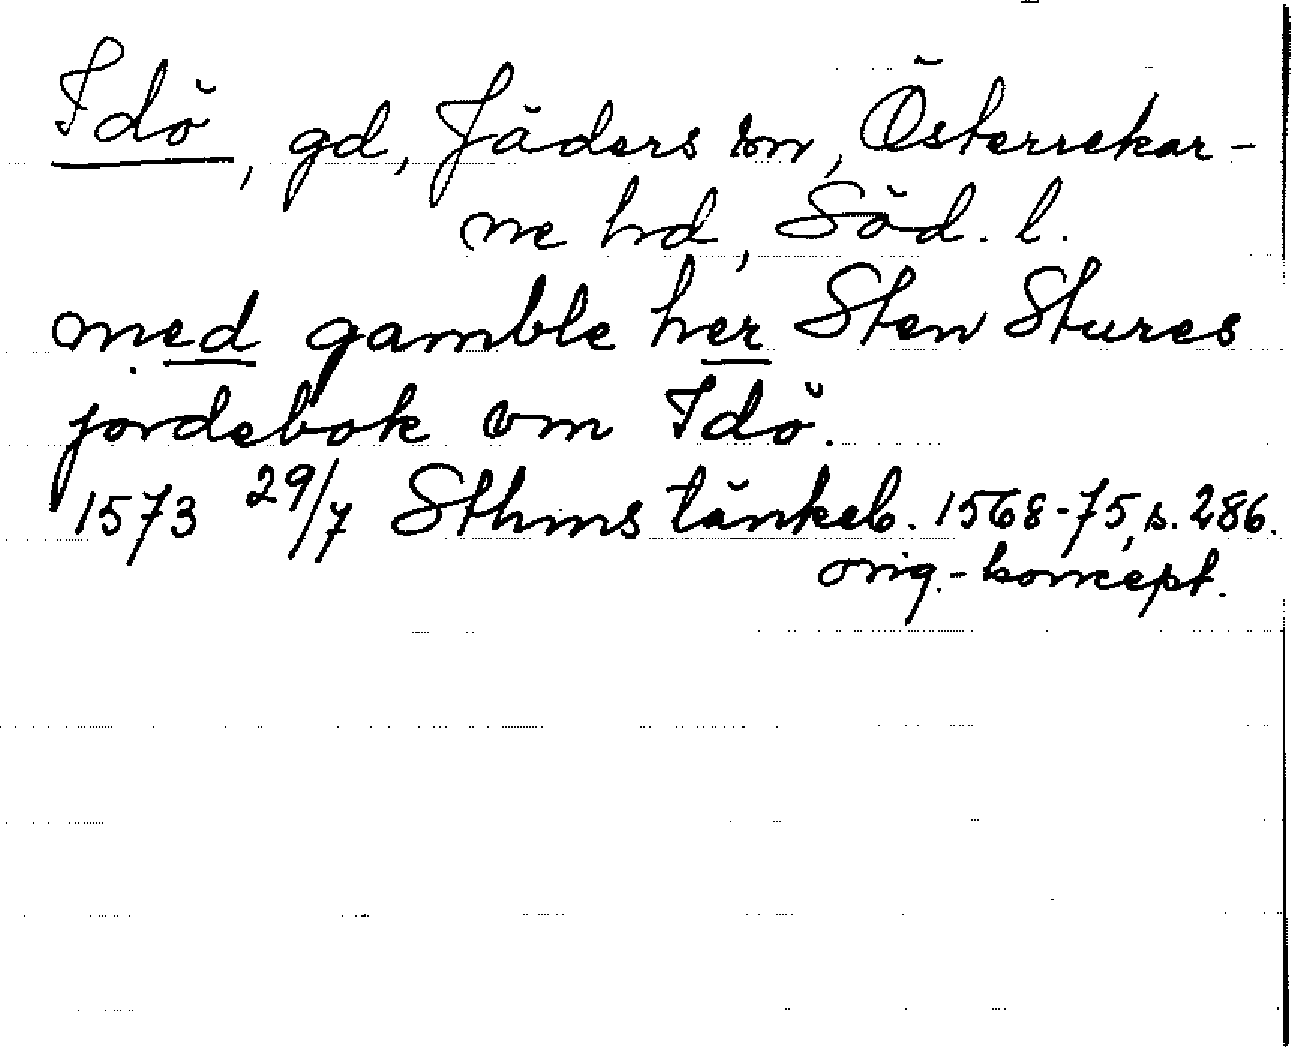 Idö, gd, Jäders sn, Österrekar-
ne hd, Söd. l.
med gamble her Sten Stures
jordebok om Idö.
1573 29/7 Sthms tänkeb. 1568-75, s. 286.
orig.-koncept.